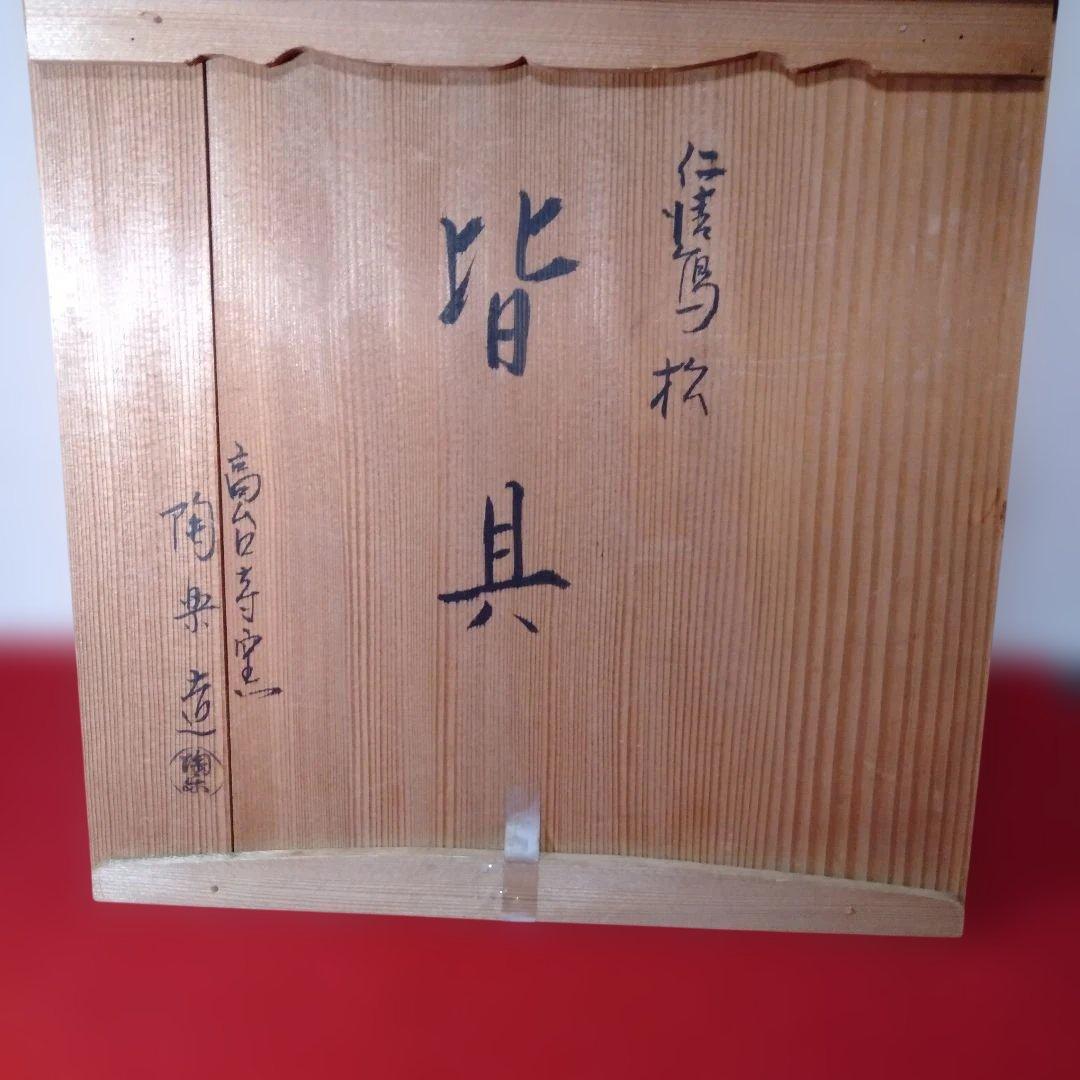 仁清写 松
皆具
高台寺窯
陶楽造
陶楽